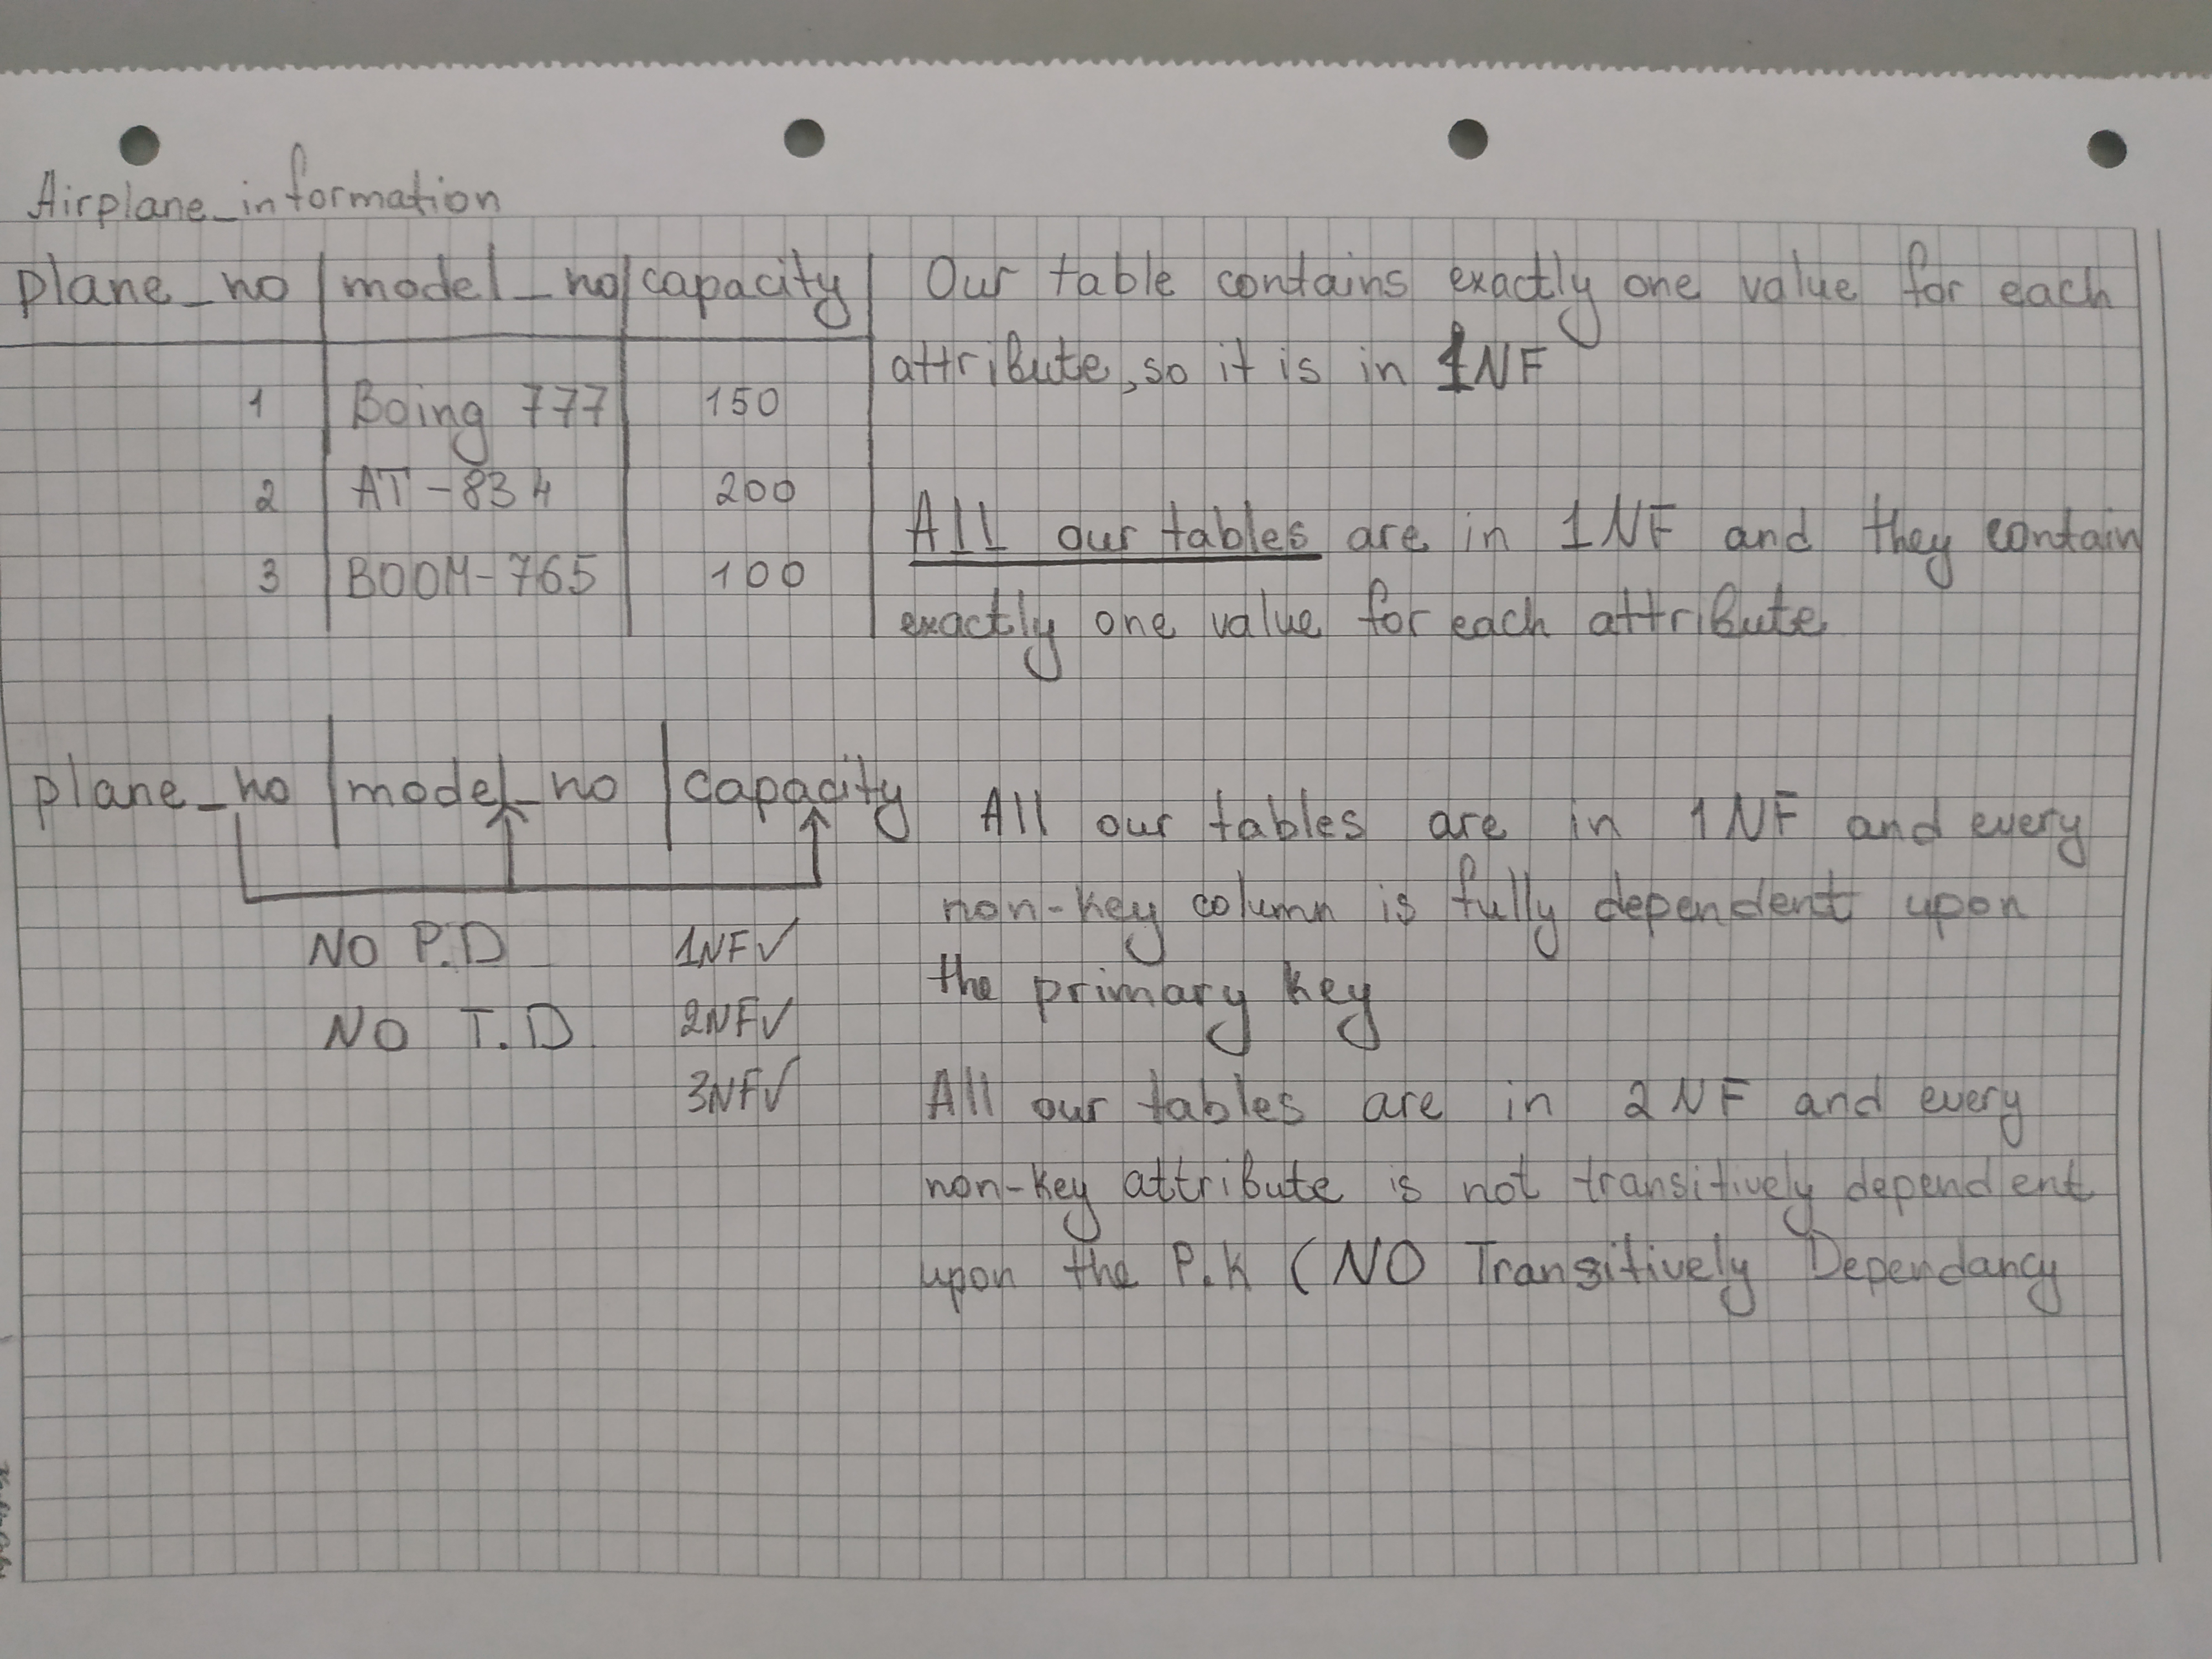 Airplane_information
plane_no | model_no | capacity
1 | Boing 777 | 150
2 | AT-834 | 200
3 | BOOM-765 | 100
Our table contains exactly one value for each
attribute, so it is in 1NF
All our tables are in 1NF and they contain
exactly one value for each attribute
plane_no | model_no | capacity
NO P.D
NO T.D
1NF✓
2NF✓
3NF✓
All our tables are in 1NF and every
non-key column is fully dependent upon
the primary key
All our tables are in 2NF and every
non-key attribute is not transitively dependent
upon the P.K (NO Transitively Dependancy